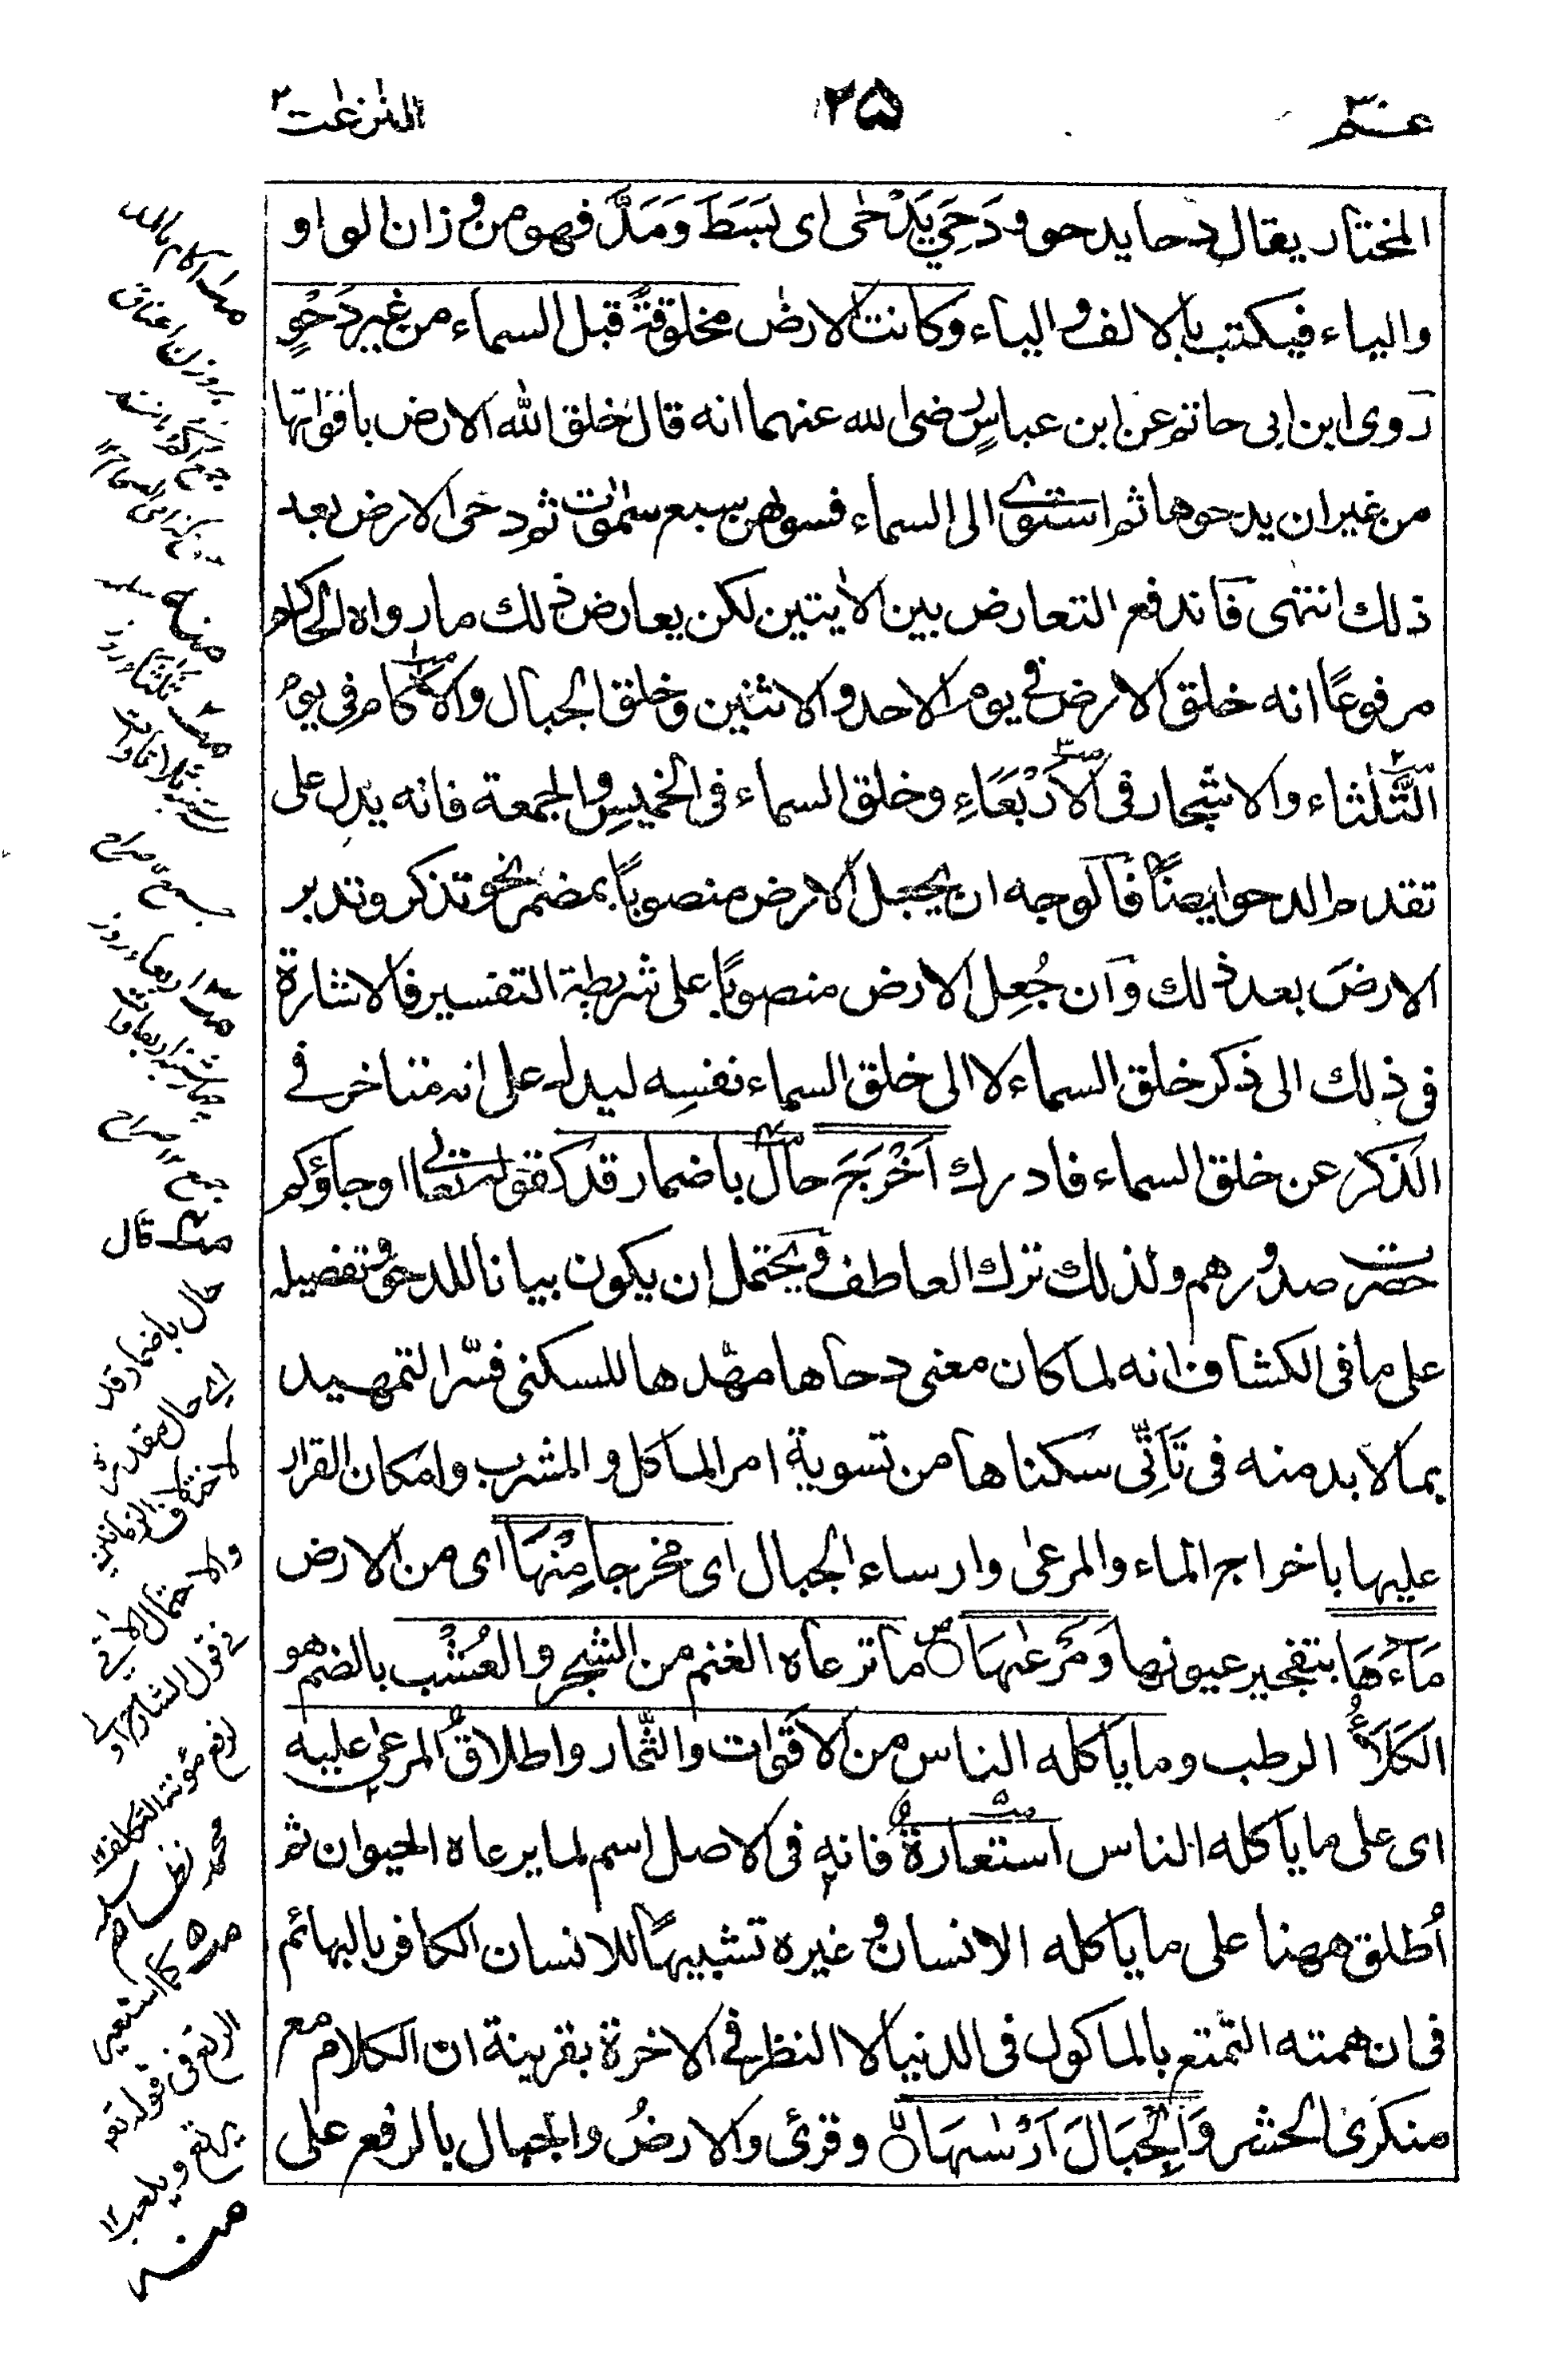 عم ٣٠
٢٥
النٰزعٰت ٢
المختار يقال دحا يدحو و دَحَي يَدْحٰى اى بَسَطَ وَمَدَّ فهو من وزان الواو
والياء فيكتب بالالف والياء وكانت الارض مخلوقةً قبل السماء من غير دَحْوٍ
روى ابن ابى حاتم عن ابن عباسٍ رضى الله عنهما انه قال خلق الله الارض باقواتها
من غير ان يدحوها ثم استوٰى الى السماء فسوٰهن سبع سمٰوٰت ثم دحى الارض بعد
ذلك انتهى فاندفع التعارض بين الاٰيتين لكن يعارض ذلك ما رواه الحاكم
مرفوعًا انه خلق الارض فى يوم الاحد والاثنين وخلق الجبال والاٰكام فى يوم
الثَّلٰثاء والاشجار فى الاَرْبَعَاءِ وخلق السماء فى الخميس والجمعة فانه يدل على
تقدم الدحو ايضًا فالوجه ان يجعل الارض منصوبًا بمضمر نحو تذكر وتدبر
الارضَ بعد ذلك وان جُعِل الارض منصوبًا على شريطة التفسير فالاشارة
فى ذلك الى ذكر خلق السماء لا الى خلق السماء نفسِه ليدل على انه متاخر فى
الذكر عن خلق السماء فادرك اَخْرَجَ حالٌ باضمار قد كقوله تعالى او جاؤكم
حصرت صدورهم ولذلك ترك العاطف ويحتمل ان يكون بيانا للدحو وتفصيله
على ما فى الكشاف انه لما كان معنى دحاها مهّدها للسكنى فسّر التمهيد
بما لا بد منه فى تَأَتِّى سكناها من تسوية امر المأكل والمشرب وامكان القرار
عليها باخراج الماء والمرعى وارساء الجبال اى مخرجا مِنْهَا اى من الارض
مَاءَهَا بتفجير عيونها وَمَرْعٰهَا ما ترعاه الغنم من الشجر والعُشْب بالضم هو
الكَلَأُ الرطب وما ياكله الناس من الاقوات والثمار واطلاقُ المرعى عليه
اى على ما ياكله الناس استعارةٌ فانه فى الاصل اسم لما يرعاه الحيوان ثم
اُطلق ههنا على ما ياكله الانسان وغيره تشبيهًا للانسان الكافر بالبهائم
فى ان همته التمتع بالماكول فى الدنيا لا النظر فى الاخرة بقرينة ان الكلام مع
منكرى الحشر وَالْجِبَالَ اَرْسٰهَا وقرئ والارضُ والجبال بالرفع على
قال
حال باضمار قد
اى حال مقدرة
لاختلاف الزمانين
فى قول الشارح او
لرفع مؤنة التكلف ١٢
محمد نظام
كما استعير
الرتع فى قوله تعه
يرتع ويلعب ١٢
منه